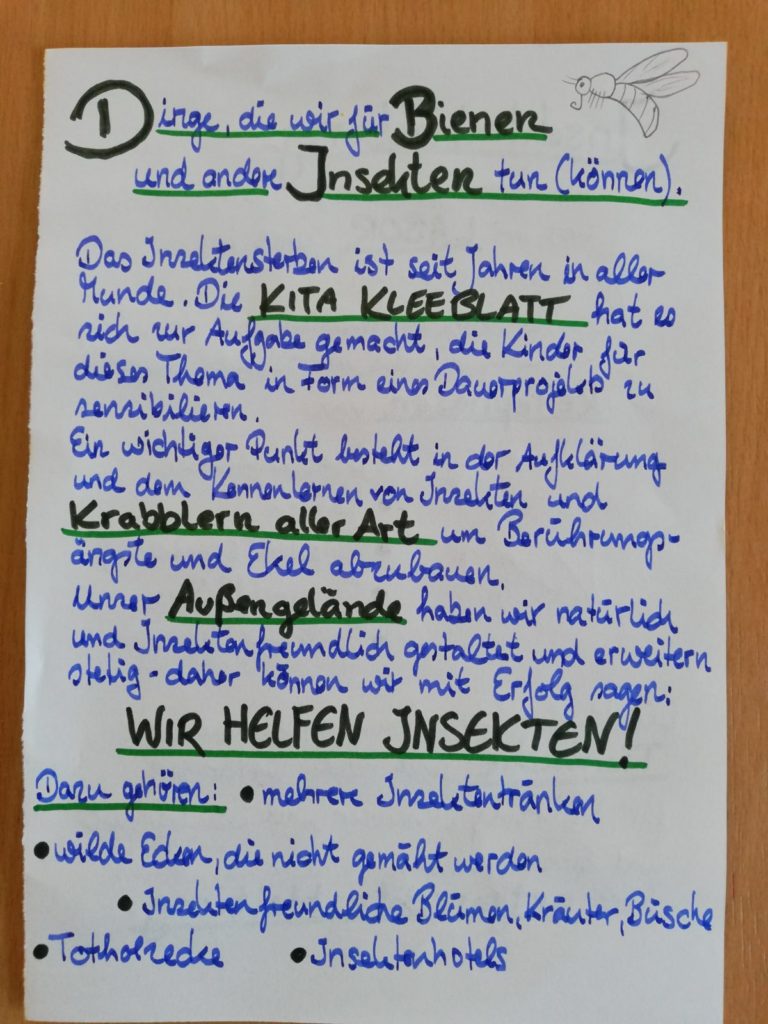 Dinge, die wir für Bienen
und andere Insekten tun (können).
Das Insektensterben ist seit Jahren in aller
Munde. Die KITA KLEEBLATT hat es
sich zur Aufgabe gemacht, die Kinder für
dieses Thema in Form eines Dauerprojekts zu
sensibilieren.
Ein wichtiger Punkt besteht in der Aufklärung
und dem Kennenlernen von Insekten und
Krabblern aller Art um Berührungs-
ängste und Ekel abzubauen.
Unser Außengelände haben wir natürlich
und Insektenfreundlich gestaltet und erweitern
stetig - daher können wir mit Erfolg sagen:
WIR HELFEN INSEKTEN!
Dazu gehören: • mehrere Insektentränken
• wilde Ecken, die nicht gemäht werden
• Insektenfreundliche Blumen, Kräuter, Büsche
• Totholzecke • Insektenhotels